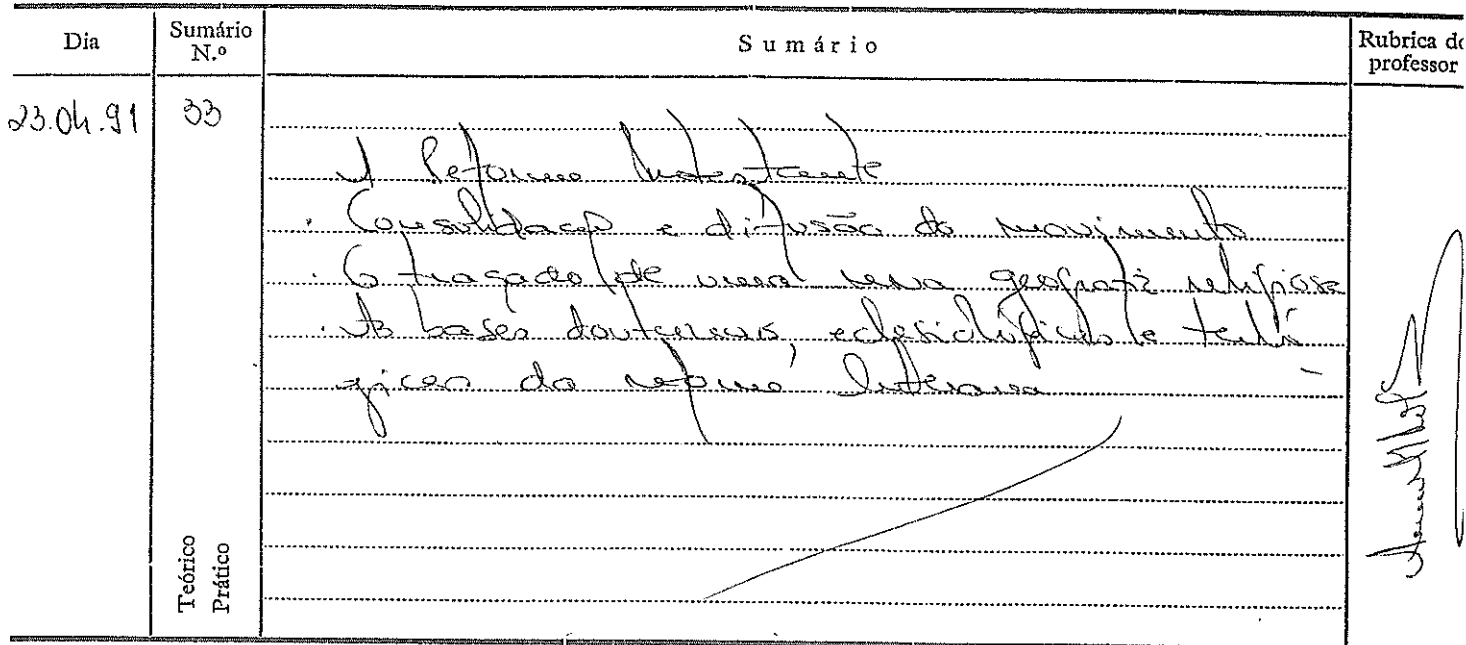 Dia
Sumário N.º
Sumário
Rubrica do professor
23.04.91
33
A Reforma Protestante
. Consolidação e difusão do movimento
. O traçado de uma nova geografia religiosa
. As bases doutrinais, eclesiológicas e teoló-
gicas da reforma luterana
Teórico
Prático